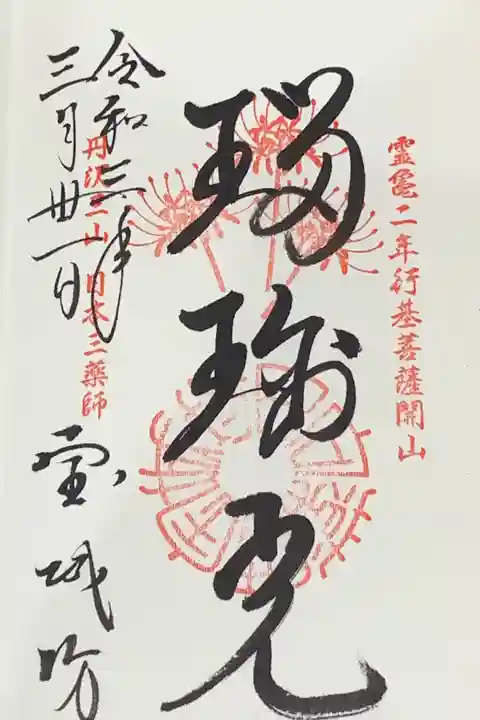 霊亀二年行基菩薩開山
瑠璃光
丹沢三山 日本三薬師
令和三年
三月卅一日
宝城坊